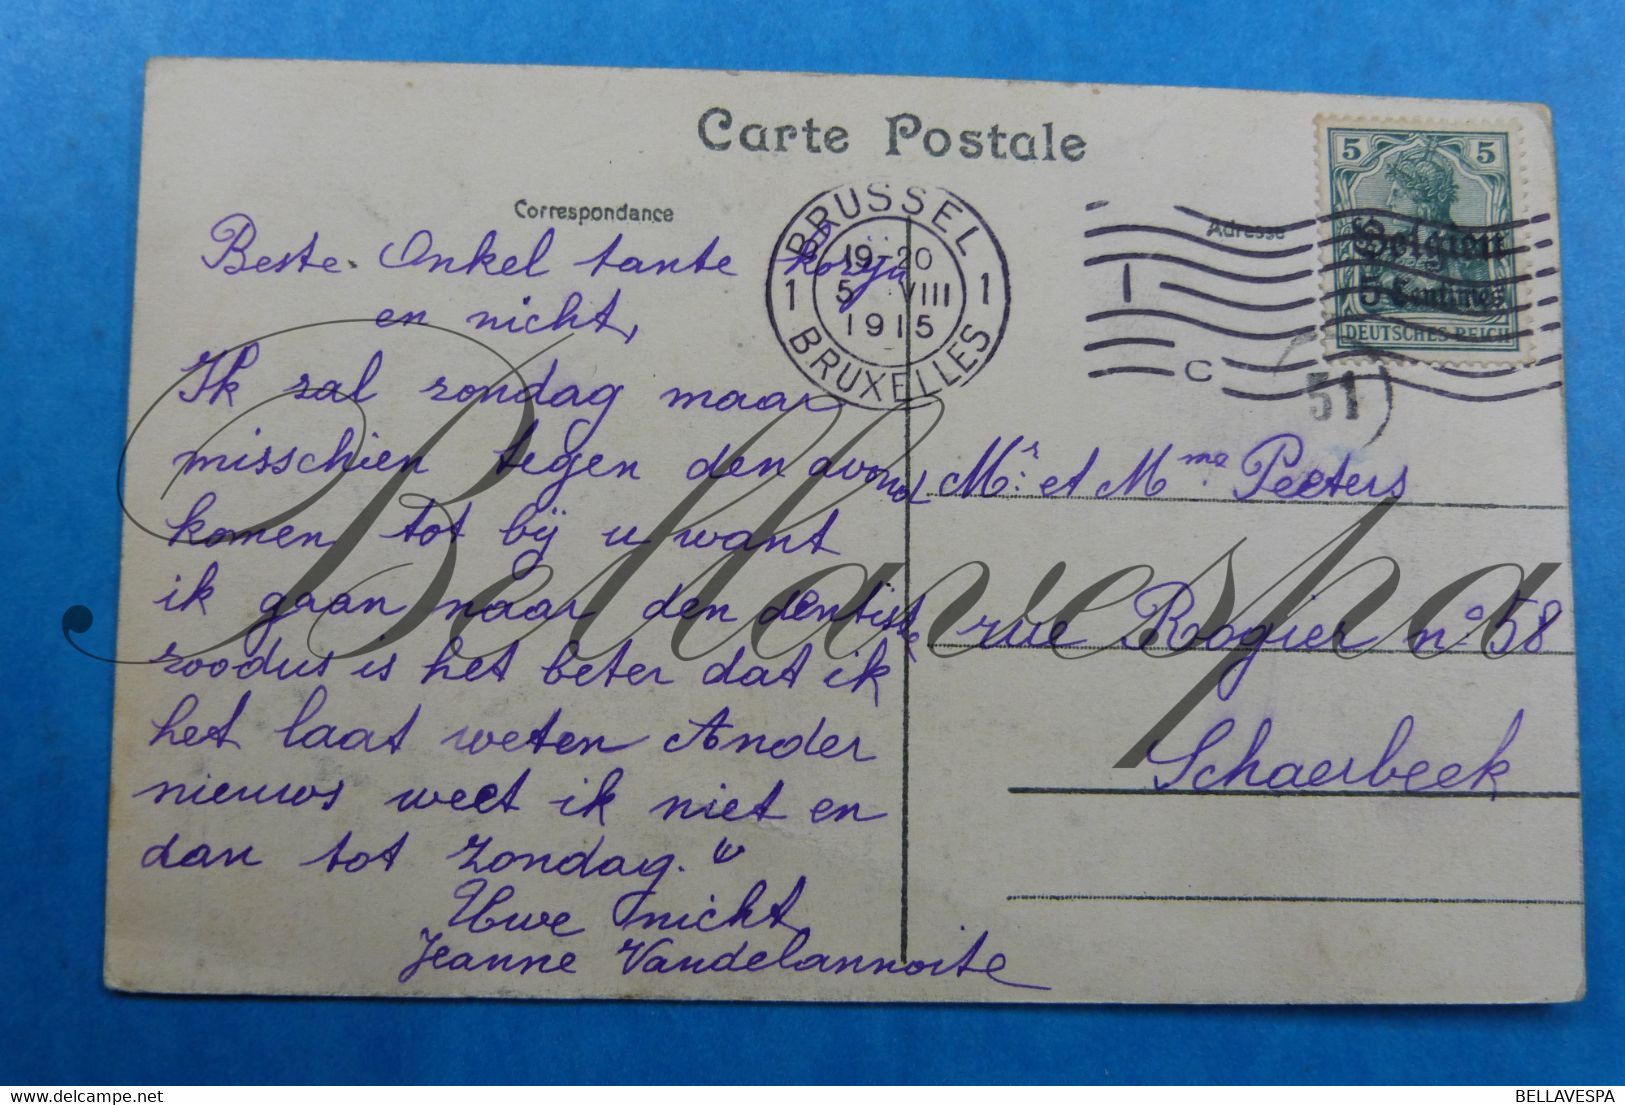 Carte Postale
Correspondance
Adresse
BRUSSEL
19-20
1 5 VIII 1
1915
BRUXELLES
1
C
5 5
Belgien
5 Centimes
DEUTSCHES REICH
51
Beste Onkel tante
en nicht,
Ik zal zondag maar
misschien tegen den avond
komen tot bij u want
ik gaan naar den dentiste
zoodus is het beter dat ik
het laat weten Ander
nieuws weet ik niet en
dan tot zondag. "
Uwe nicht
Jeanne Vandelannoite
Mr. et Mme. Peeters
rue Rogier no. 58
Schaerbeek
Bellavespa
BELLAVESPA